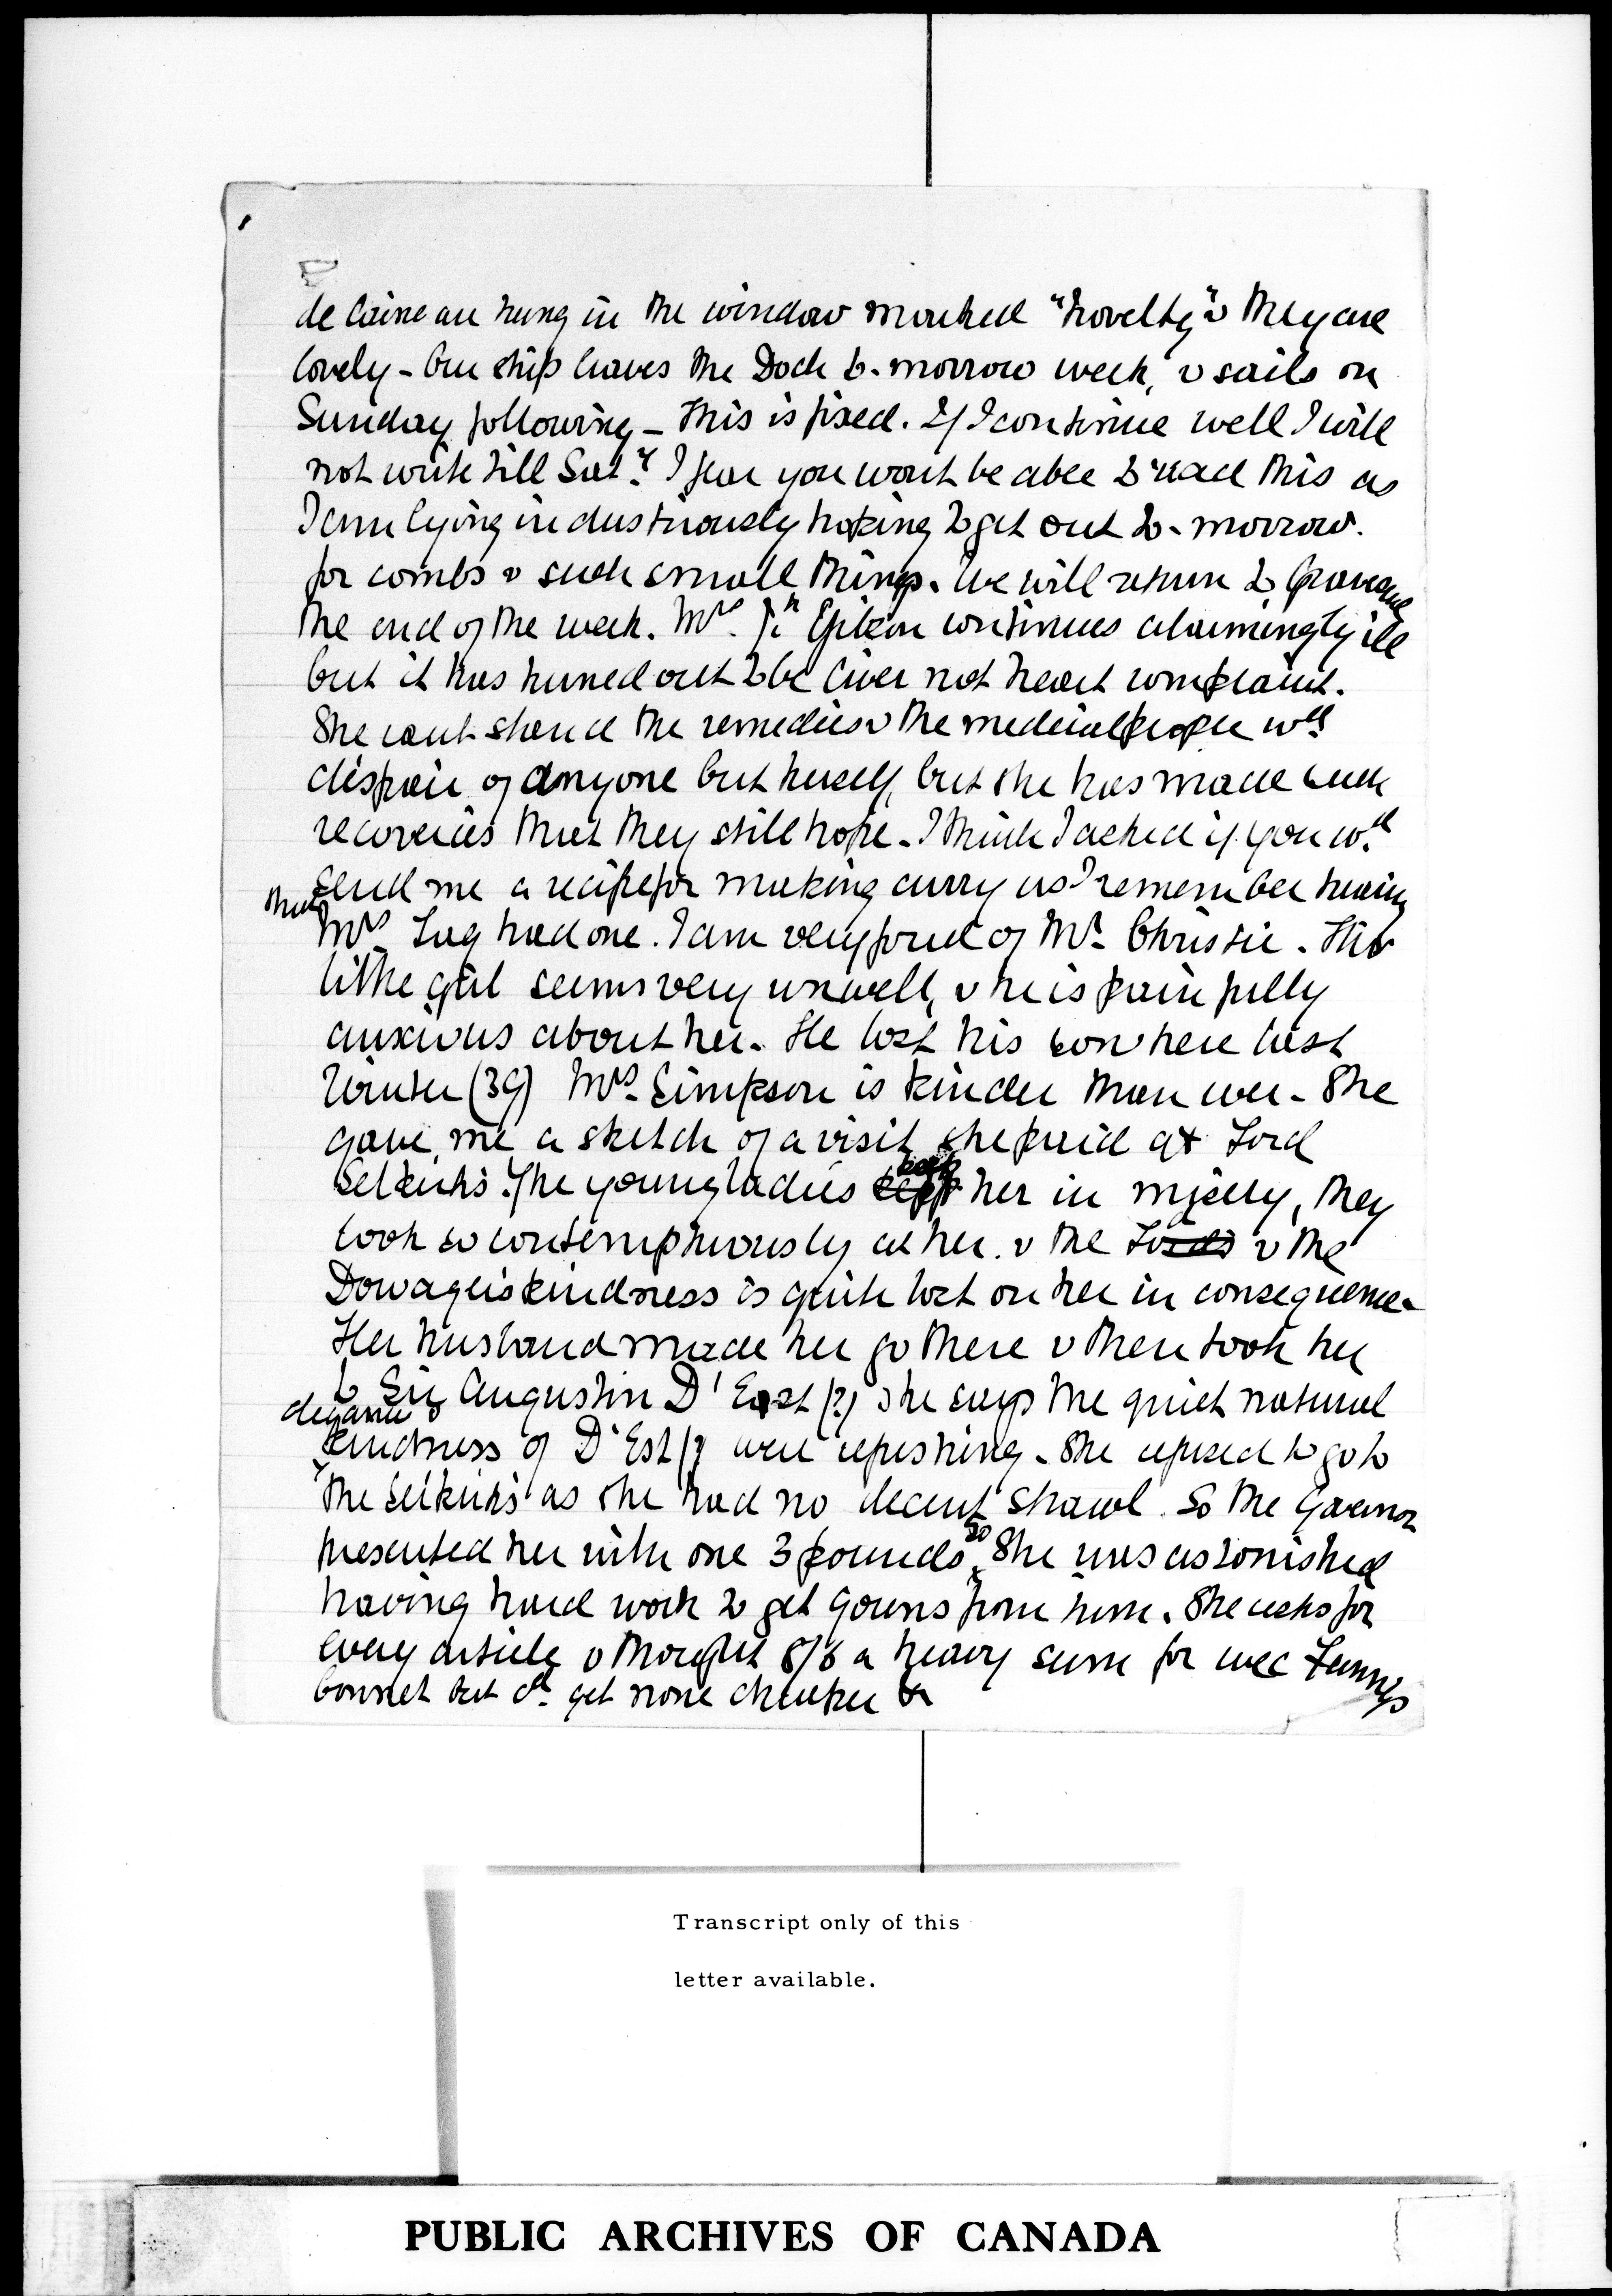 de laine are hung in the window marked "novelty" & they are
lovely - Our ship leaves the Dock to-morrow week, & sails on
Sunday following - This is fixed. If I continue well I will
not write till Saty. I fear you wont be able to read this as
I am lying industriously hoping to get out to-morrow.
for combs & such small things. We will return to Gravesend
the end of the week. Mrs. Jn continues alarmingly ill
but it has turned out to be liver not heart complaint.
She cant stand the remedies & the medical people wd
dispair of anyone but herself, but she has made such
recoveries that they still hope. I think I asked if you wd
send me a recipe for making curry as I remember hearing
that Mrs had one. I am very fond of Mr Christie. His
little girl seems very unwell, & he is painfully
anxious about her. He lost his son here last
Winter (39) Mrs. Simpson is kinder than ever. She
gave me a sketch of a visit she paid at Lord
Selkirks. The young ladies kept her in misery, they
look so contemptuously at her. & the Lords & the
Dowager's kindness is quite lost on her in consequence.
Her husband made her go there & then took her
to Sir Augustin D'East (?) she says the quiet natural
elegance & kindness of D'Est (? were refreshing. She refused to go to
the Selkirks as she had no decent shawl. So the Governor
presented her with one 3 pounds, so She was astonished
having hard work to get gowns from him. She asks for
every article & thought 8/6 a heavy sum for wee Fannys
bonnet but cd. get none cheaper
Transcript only of this
letter available.
PUBLIC ARCHIVES OF CANADA